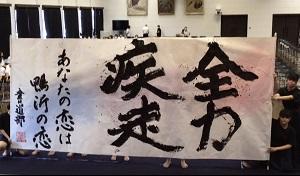 全力
疾走
あなたの恋は
鴨沂の恋
書道部